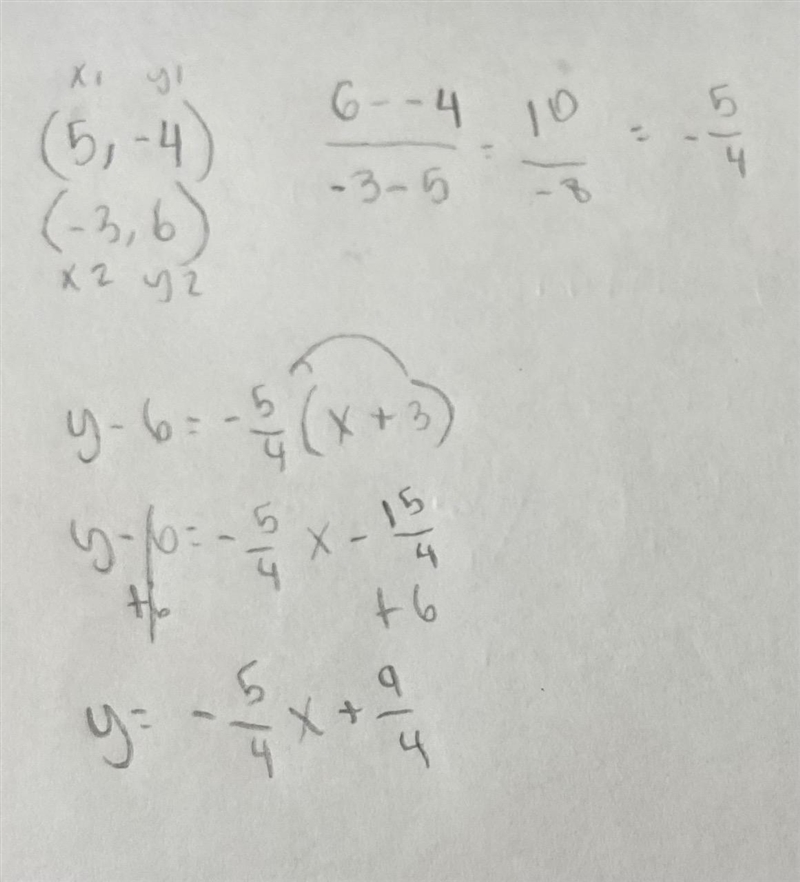 x1 y1
(5, -4)
(-3, 6)
x2 y2
6--4/-3-5 = 10/-8 = -5/4
y-6=-5/4(x+3)
y-6=-5/4x-15/4
+6 +6
y=-5/4x+9/4